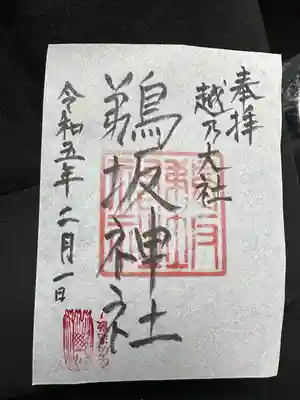 奉拝
越乃大社
鵜坂神社
令和五年二月一日